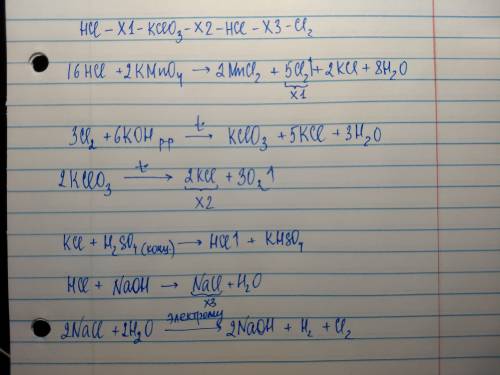 HCl – X1 – KClO₃ – X2 – HCl – X3 – Cl₂
16HCl + 2KMnO₄ → 2MnCl₂ + 5Cl₂↑ + 2KCl + 8H₂O
X1
3Cl₂ + 6KOH р-р →t KClO₃ + 5KCl + 3H₂O
2KClO₃ →t 2KCl + 3O₂↑
X2
KCl + H₂SO₄ (конц.) → HCl↑ + KHSO₄
HCl + NaOH → NaCl + H₂O
X3
2NaCl + 2H₂O →электролиз 2NaOH + H₂ + Cl₂